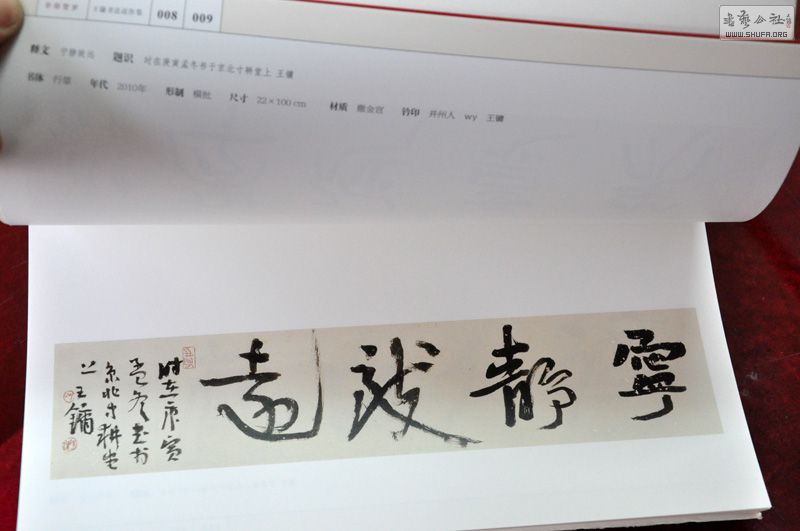 王镛书法作品集 008 009
书艺公社
WWW.SHUFA.ORG
释文 宁静致远 题识 时在庚寅孟冬书于京北寸耕堂上 王镛
书体 行草 年代 2010年 形制 横批 尺寸 22×100cm 材质 撒金宣 钤印 并州人 wy 王镛
寧靜致遠
時在庚寅
孟冬書於
京北寸耕堂
上王鏞